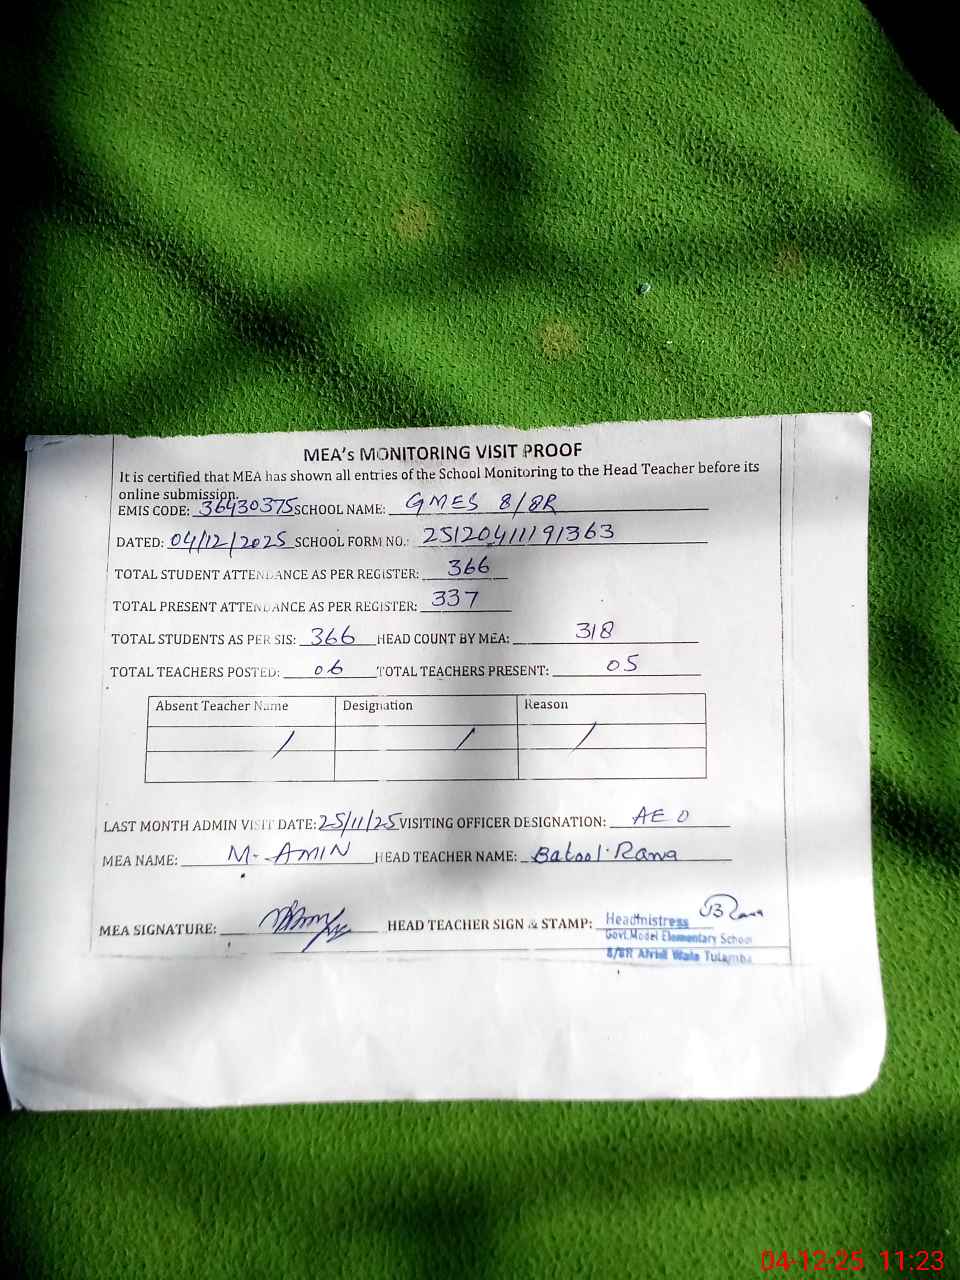 MEA's MONITORING VISIT PROOF
It is certified that MEA has shown all entries of the School Monitoring to the Head Teacher before its
online submission.
EMIS CODE: 36430375 SCHOOL NAME: GMES 8/8R
DATED: 04/12/2025 SCHOOL FORM NO.: 25120411191363
TOTAL STUDENT ATTENDANCE AS PER REGISTER: 366
TOTAL PRESENT ATTENDANCE AS PER REGISTER: 337
TOTAL STUDENTS AS PER SIS: 366 HEAD COUNT BY MEA: 318
TOTAL TEACHERS POSTED: 06 TOTAL TEACHERS PRESENT: 05
Absent Teacher Name Designation Reason
/ / /
LAST MONTH ADMIN VISIT DATE: 25/11/25 VISITING OFFICER DESIGNATION: AEO
MEA NAME: M. AMIN HEAD TEACHER NAME: Batool Rana
MEA SIGNATURE: HEAD TEACHER SIGN & STAMP: Headmistress
Govt.Model Elementary School
8/8R Wala Tulamba
04-12-25 11:23